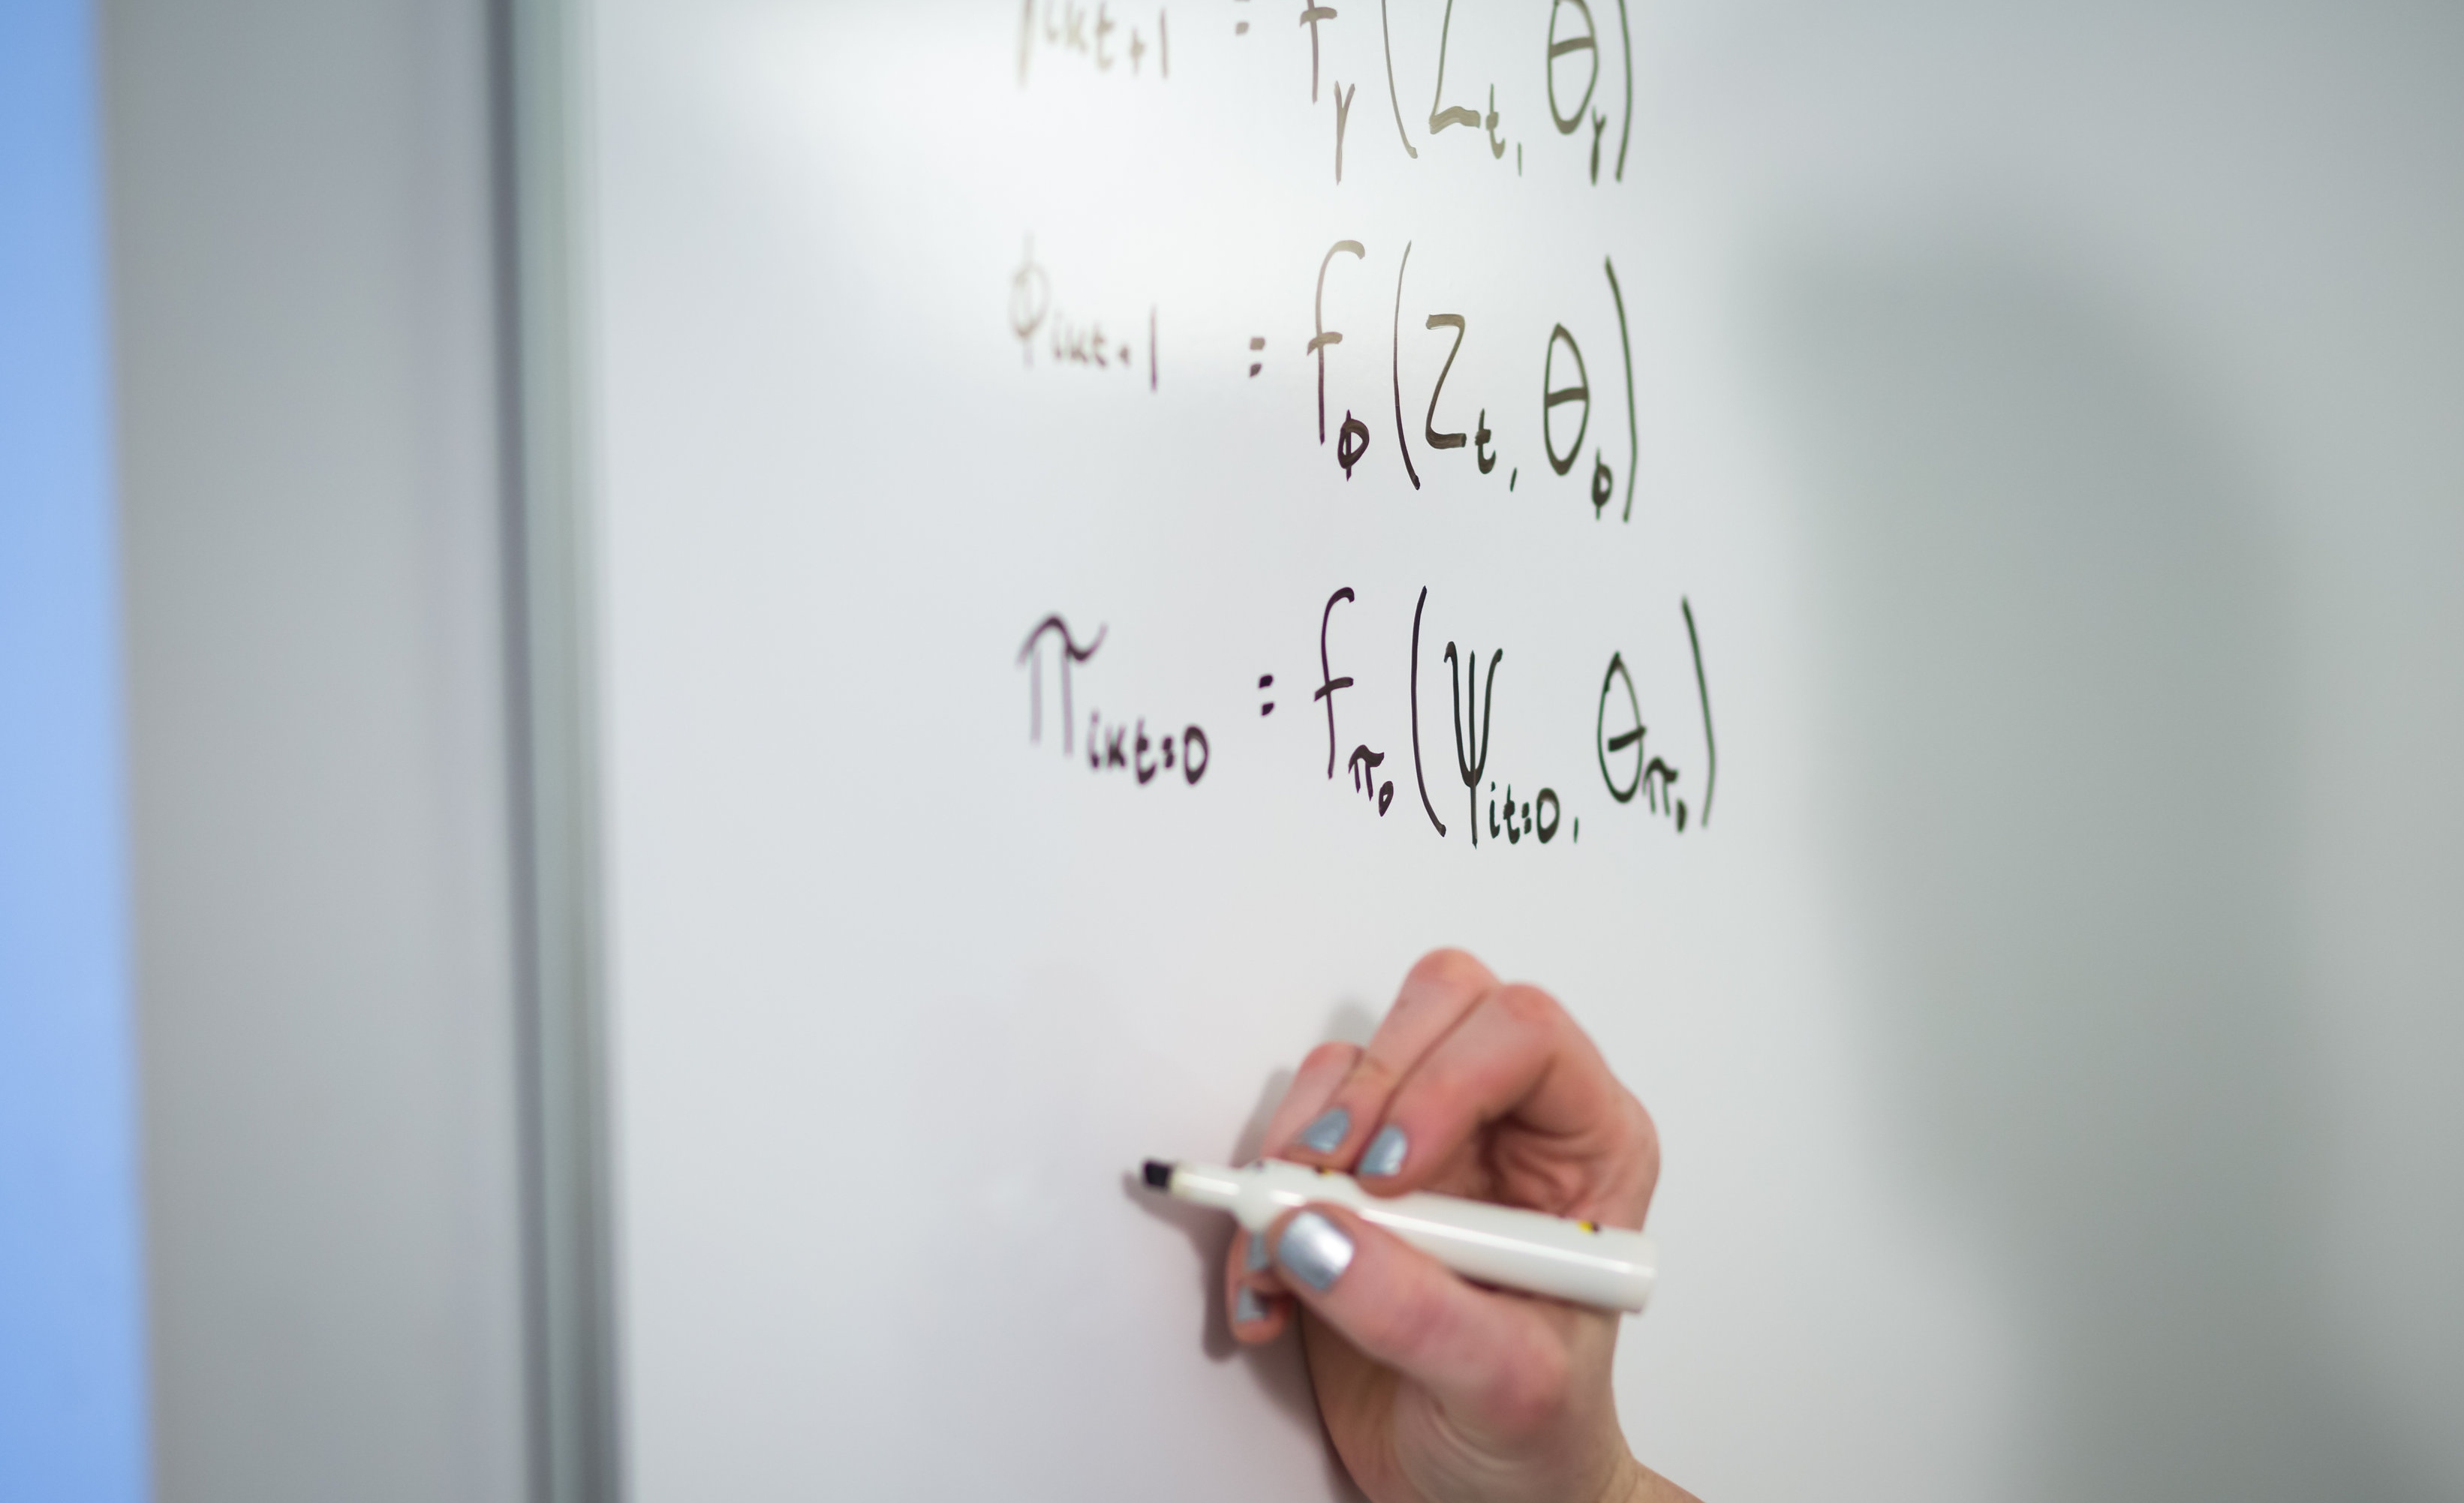 γikt+1 = fγ(Zt, θγ)
ϕikt+1 = fϕ(Zt, θϕ)
πikt=0 = fπ0(ψit=0, θπ0)